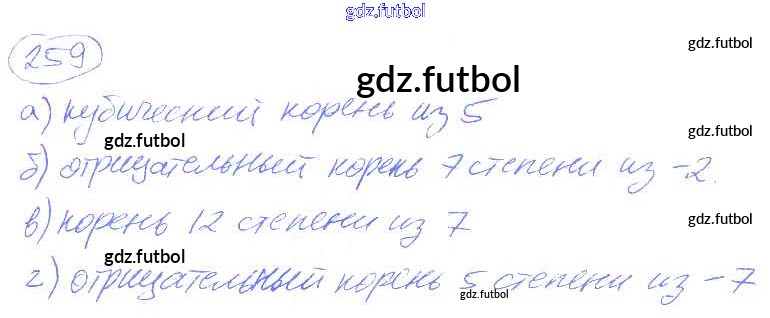 gdz.futbol
259
gdz.futbol
gdz.futbol
а) кубический корень из 5
gdz.futbol
gdz.futbol
б) отрицательный корень 7 степени из -2.
в) корень 12 степени из 7
gdz.futbol
gdz.futbol
г) отрицательный корень 5 степени из -7
gdz.futbol